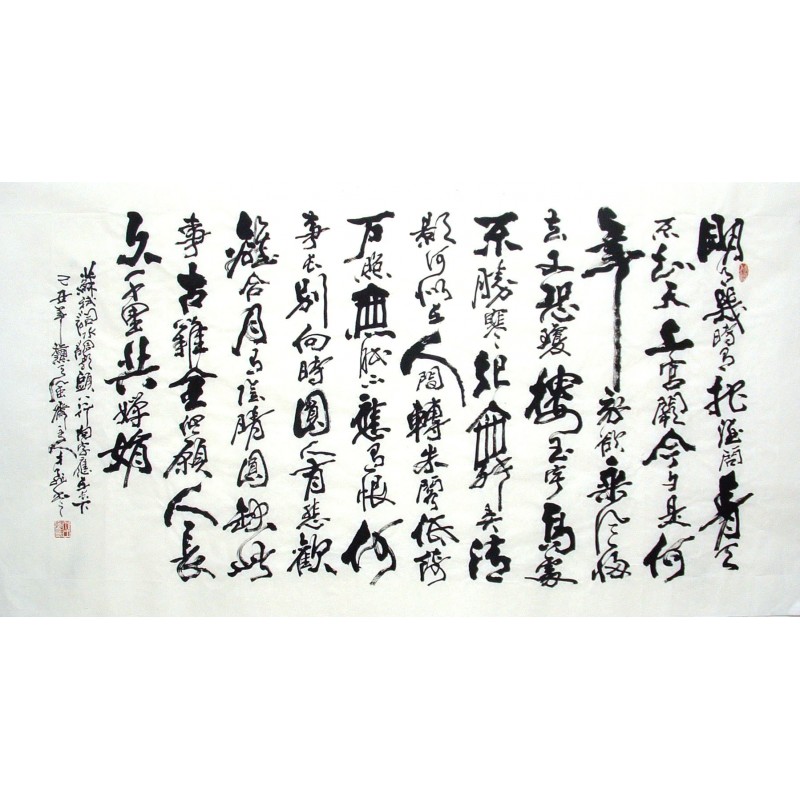 明月幾時有把酒問青天
不知天上宮闕今夕是何
年我欲乘風歸
去又恐瓊樓玉宇高處
不勝寒起舞弄清
影何似在人間轉朱閣低綺
戶照無眠不應有恨何
事長別向時圓人有悲歡
離合月有陰晴圓缺此
事古難全但願人長
久千里共嬋娟
蘇軾詞水調歌頭
己丑年